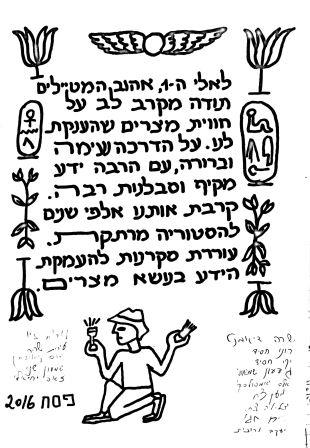 לאלי ה-1, אהוב המטיילים
תודה מקרב לב על
חווית מצרים שהענקת
לנו. על הדרכה נעימה
וברורה, עם הרבה ידע
מקיף וסבלנות רבה.
קרבת אותנו אלפי שנים
להסטוריה מרתקת.
עוררת סקרנות להעמקת
הידע בנושא מצרים.
שרה
רוני חסיד
יקי חסיד
פסח 2016